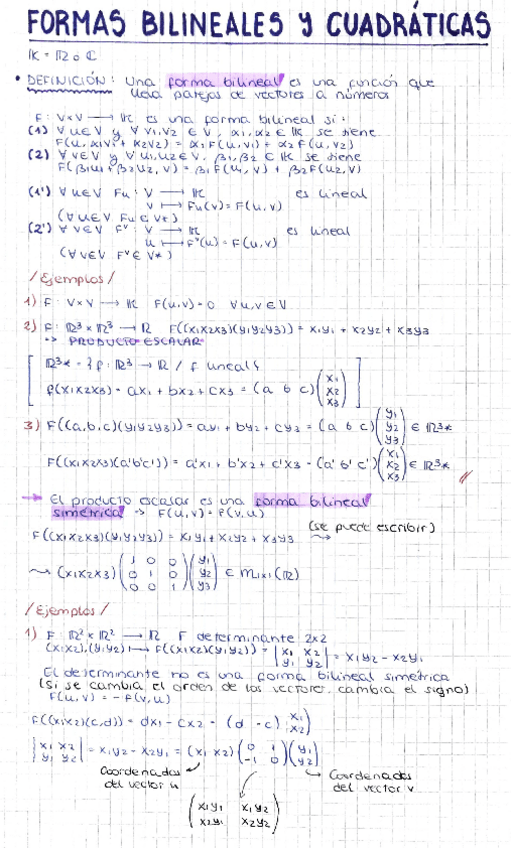 FORMAS BILINEALES Y CUADRÁTICAS
IK = IR o ℂ
• DEFINICIÓN: Una forma bilineal es una función que
lleva parejas de vectores a números
F: V×V → IK es una forma bilineal si:
(1) ∀u∈V y ∀v₁,v₂ ∈ V, α₁,α₂ ∈ IK se tiene
F(u, α₁v₁ + α₂v₂) = α₁F(u,v₁) + α₂F(u,v₂)
(2) ∀v∈V y ∀u₁,u₂∈V, β₁,β₂ ∈ IK se tiene
F(β₁u₁+β₂u₂, v) = β₁F(u₁,v) + β₂F(u₂,v)
(1') ∀u∈V Fu: V → IK es lineal
v ↦ Fu(v)=F(u,v)
(∀u∈V Fu∈V*)
(2') ∀v∈V Fᵛ: V → IK es lineal
u ↦ Fᵛ(u)=F(u,v)
(∀v∈V Fᵛ∈V*)
/Ejemplos/
1) F: V×V → IK F(u,v)=0 ∀u,v∈V
2) F: IR³×IR³ → IR F((x₁x₂x₃)(y₁y₂y₃)) = x₁y₁ + x₂y₂ + x₃y₃
PRODUCTO ESCALAR
IR³* = {f: IR³ → IR / f lineal}
f(x₁x₂x₃) = ax₁ + bx₂ + cx₃ = (a b c) (x₁ x₂ x₃)
3) F((a,b,c)(y₁y₂y₃)) = ay₁ + by₂ + cy₃ = (a b c) (y₁ y₂ y₃) ∈ IR³*
F((x₁x₂x₃)(a'b'c')) = a'x₁ + b'x₂ + c'x₃ = (a' b' c') (x₁ x₂ x₃) ∈ IR³*
→ El producto escalar es una forma bilineal
simétrica → F(u,v)=F(v,u)
(se puede escribir)
F((x₁x₂x₃)(y₁y₂y₃)) = x₁y₁ + x₂y₂ + x₃y₃
(x₁x₂x₃) (1 0 0 / 0 1 0 / 0 0 1) (y₁ y₂ y₃) ∈ M₁ₓ₁(IR)
/Ejemplos/
1) F: IR²×IR² → IR F determinante 2x2
(x₁x₂),(y₁y₂) ↦ F((x₁x₂)(y₁y₂)) = |x₁ x₂ / y₁ y₂| = x₁y₂ - x₂y₁
El determinante no es una forma bilineal simétrica
(si se cambia el orden de los vectores, cambia el signo)
F(u,v) = -F(v,u)
F((x₁x₂)(c,d)) = dx₁ - cx₂ = (d -c) (x₁ x₂)
|x₁ x₂ / y₁ y₂| = x₁y₂ - x₂y₁ = (x₁ x₂) (0 1 / -1 0) (y₁ y₂)
Coordenadas
del vector u
Coordenadas
del vector v
(x₁y₁ x₁y₂ / x₂y₁ x₂y₂)